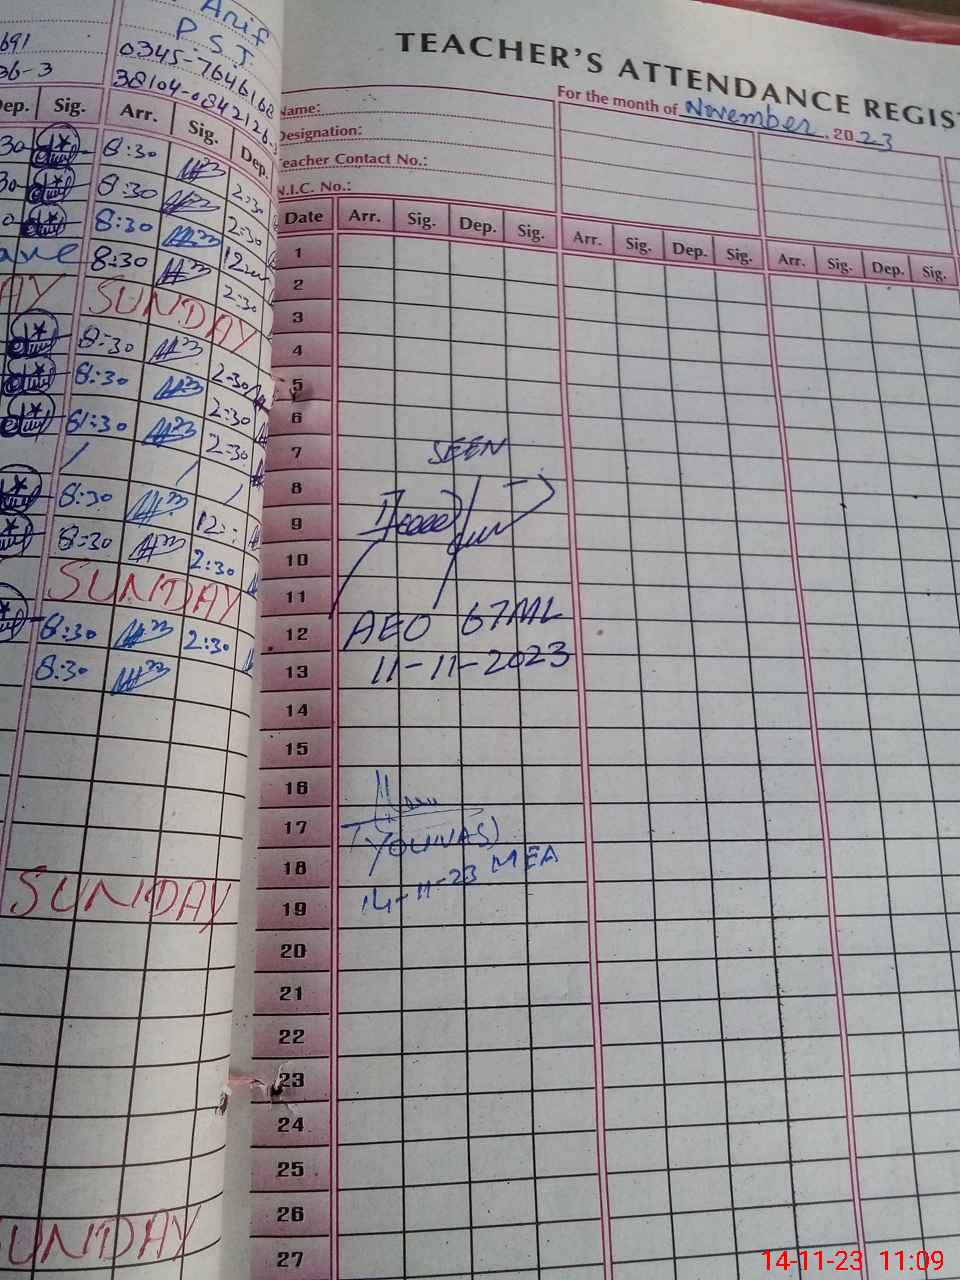 Arif
P.S.T
0345-7646168
691
36-3
38104-0842126-3
Dep. Sig. Arr. Sig. Dep.
30 8:30 2:30
30 8:30 2:30
8:30 12
8:30 2:30
SUNDAY
8:30 2:30
8:30 2:30
8:30 2:30
8:30 12
8:30 2:30
SUNDAY
8:30 2:30
8:30
SUNDAY
SUNDAY
TEACHER'S ATTENDANCE REGIS
For the month of November, 2023
Name:
Designation:
Teacher Contact No.:
N.I.C. No.:
Date Arr. Sig. Dep. Sig. Arr. Sig. Dep. Sig. Arr. Sig. Dep. Sig.
1
2
3
4
5
6
7
SEEN
8
9
10
11
12
AEO 67ML
13
11-11-2023
14
15
16
17
(YOUNAS)
18
14-11-23 MEA
19
20
21
22
23
24
25
26
27
14-11-23 11:09